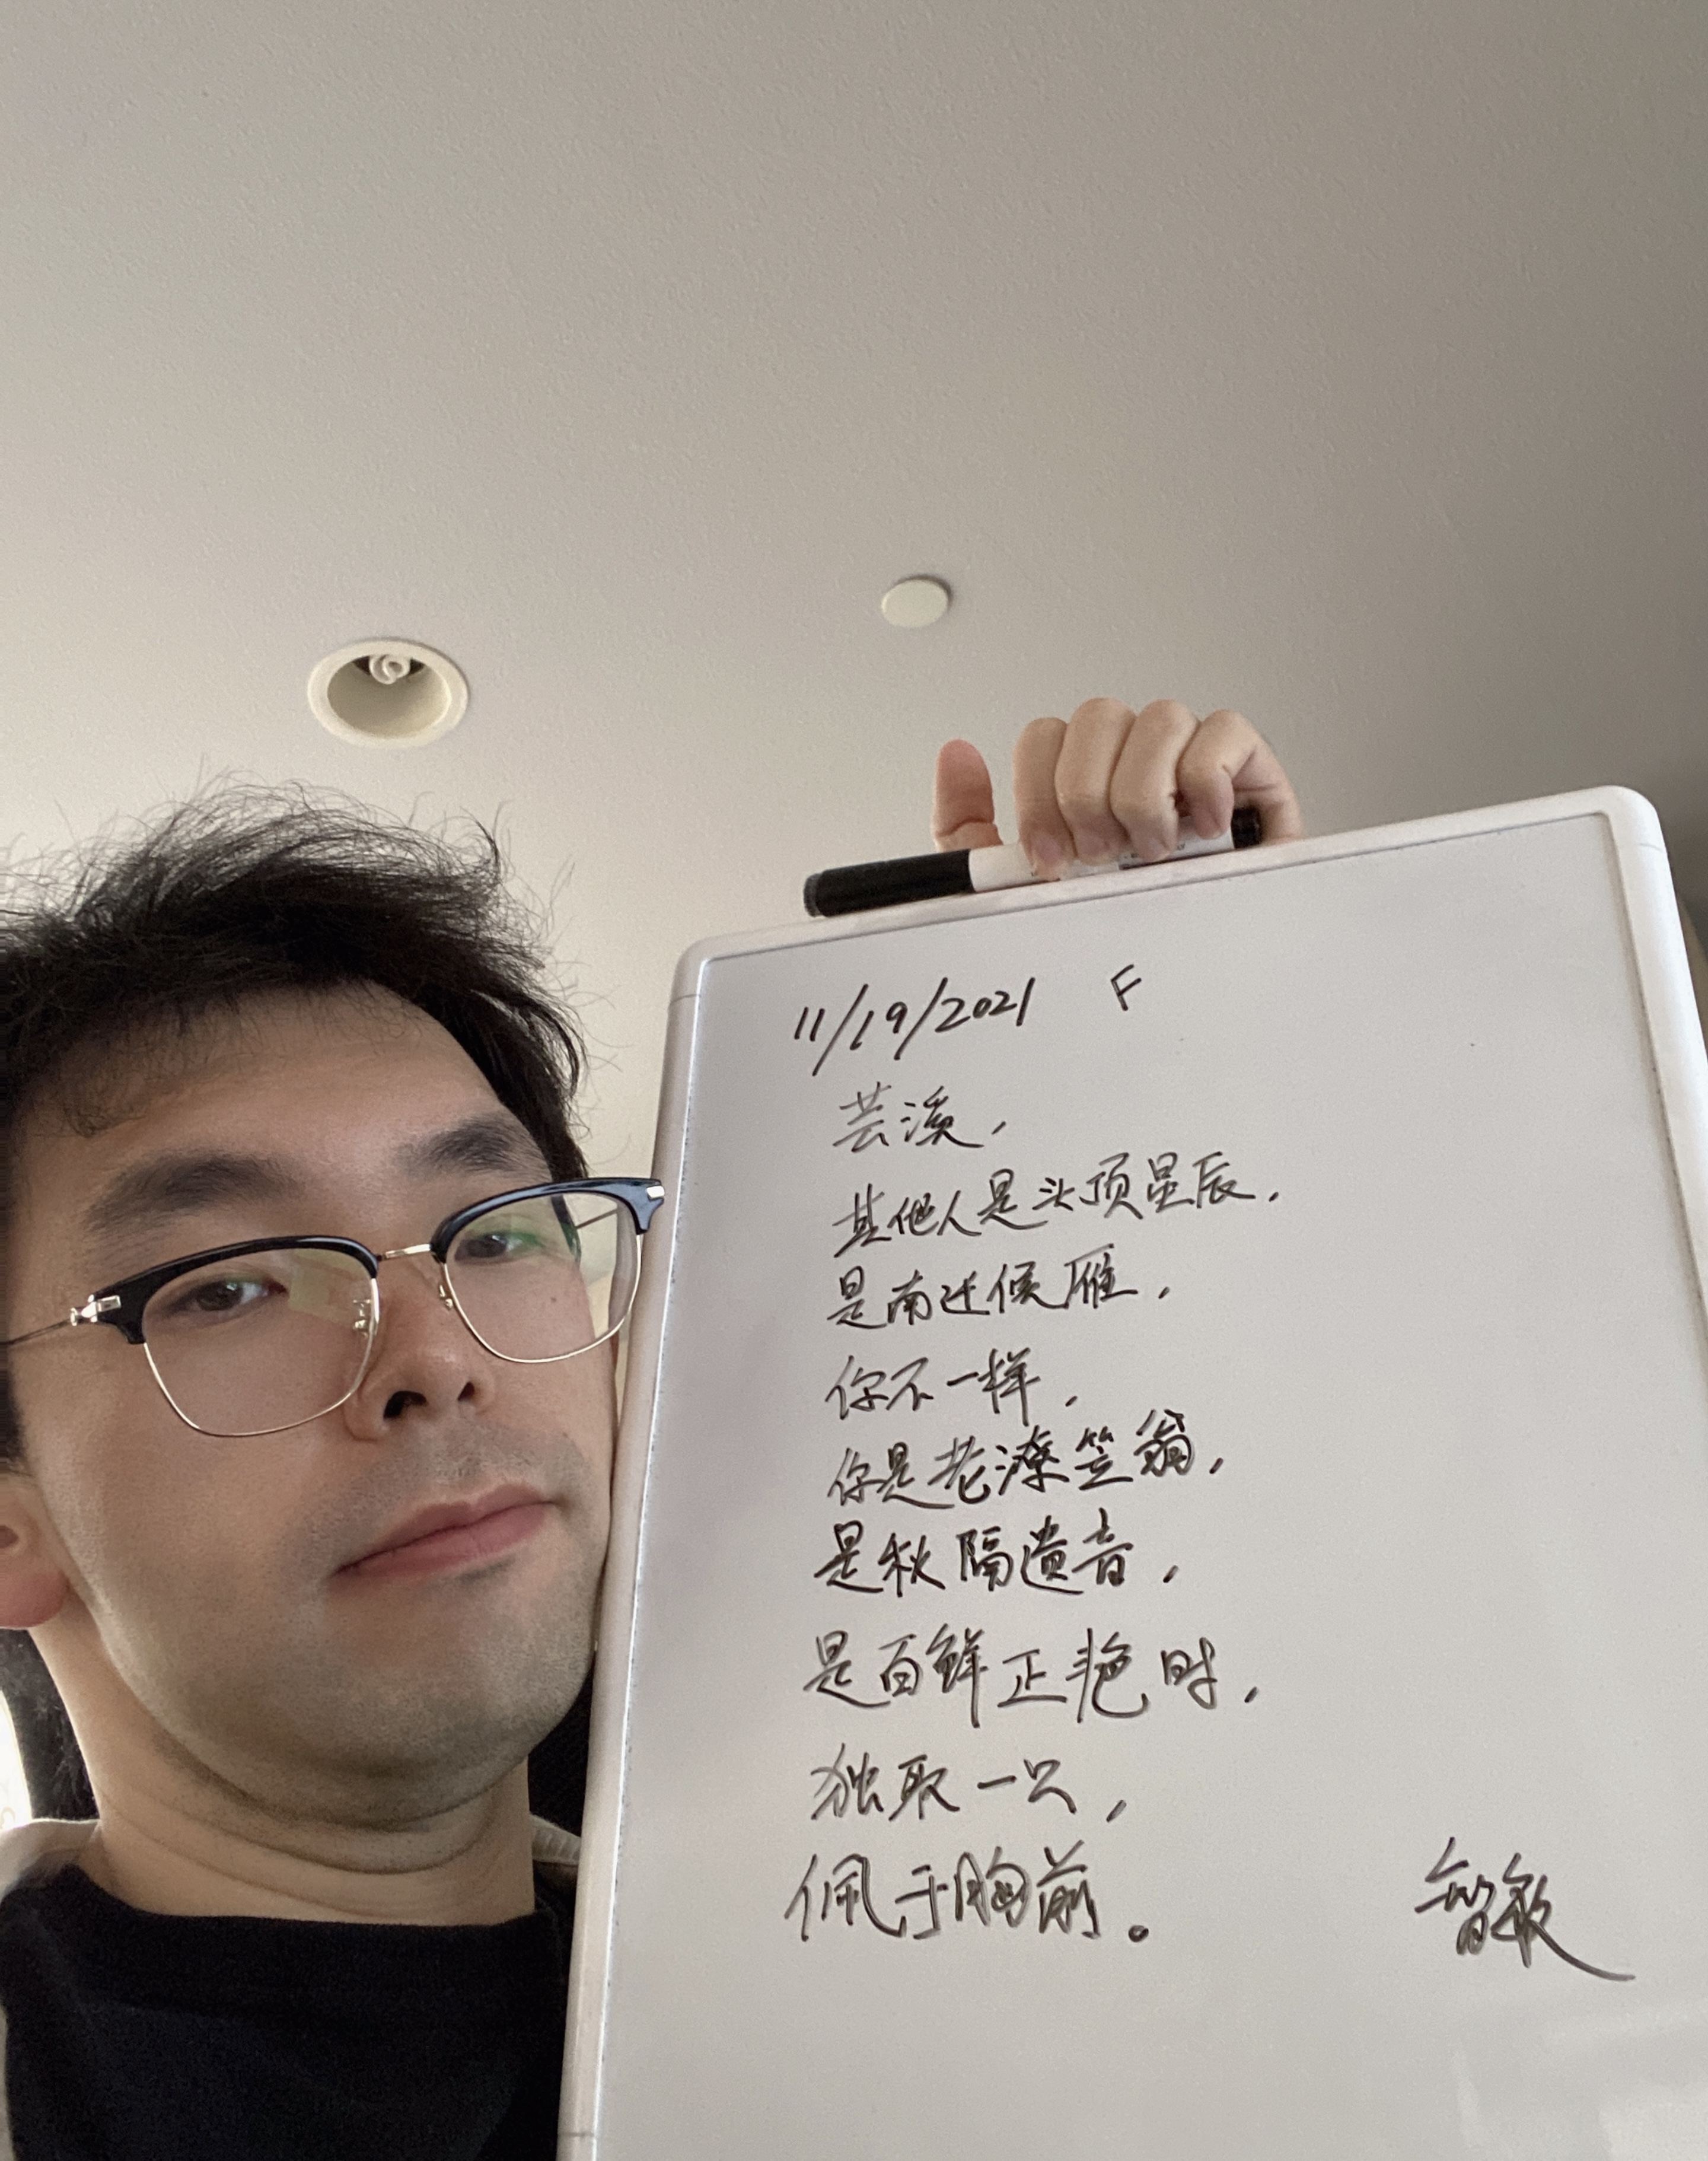 11/19/2021 F
芸溪，
其他人是头顶星辰，
是南迁候雁，
你不一样，
你是老潦笠翁，
是秋隔遗音，
是百鲜正艳时，
独取一只，
佩于胸前。
智敏